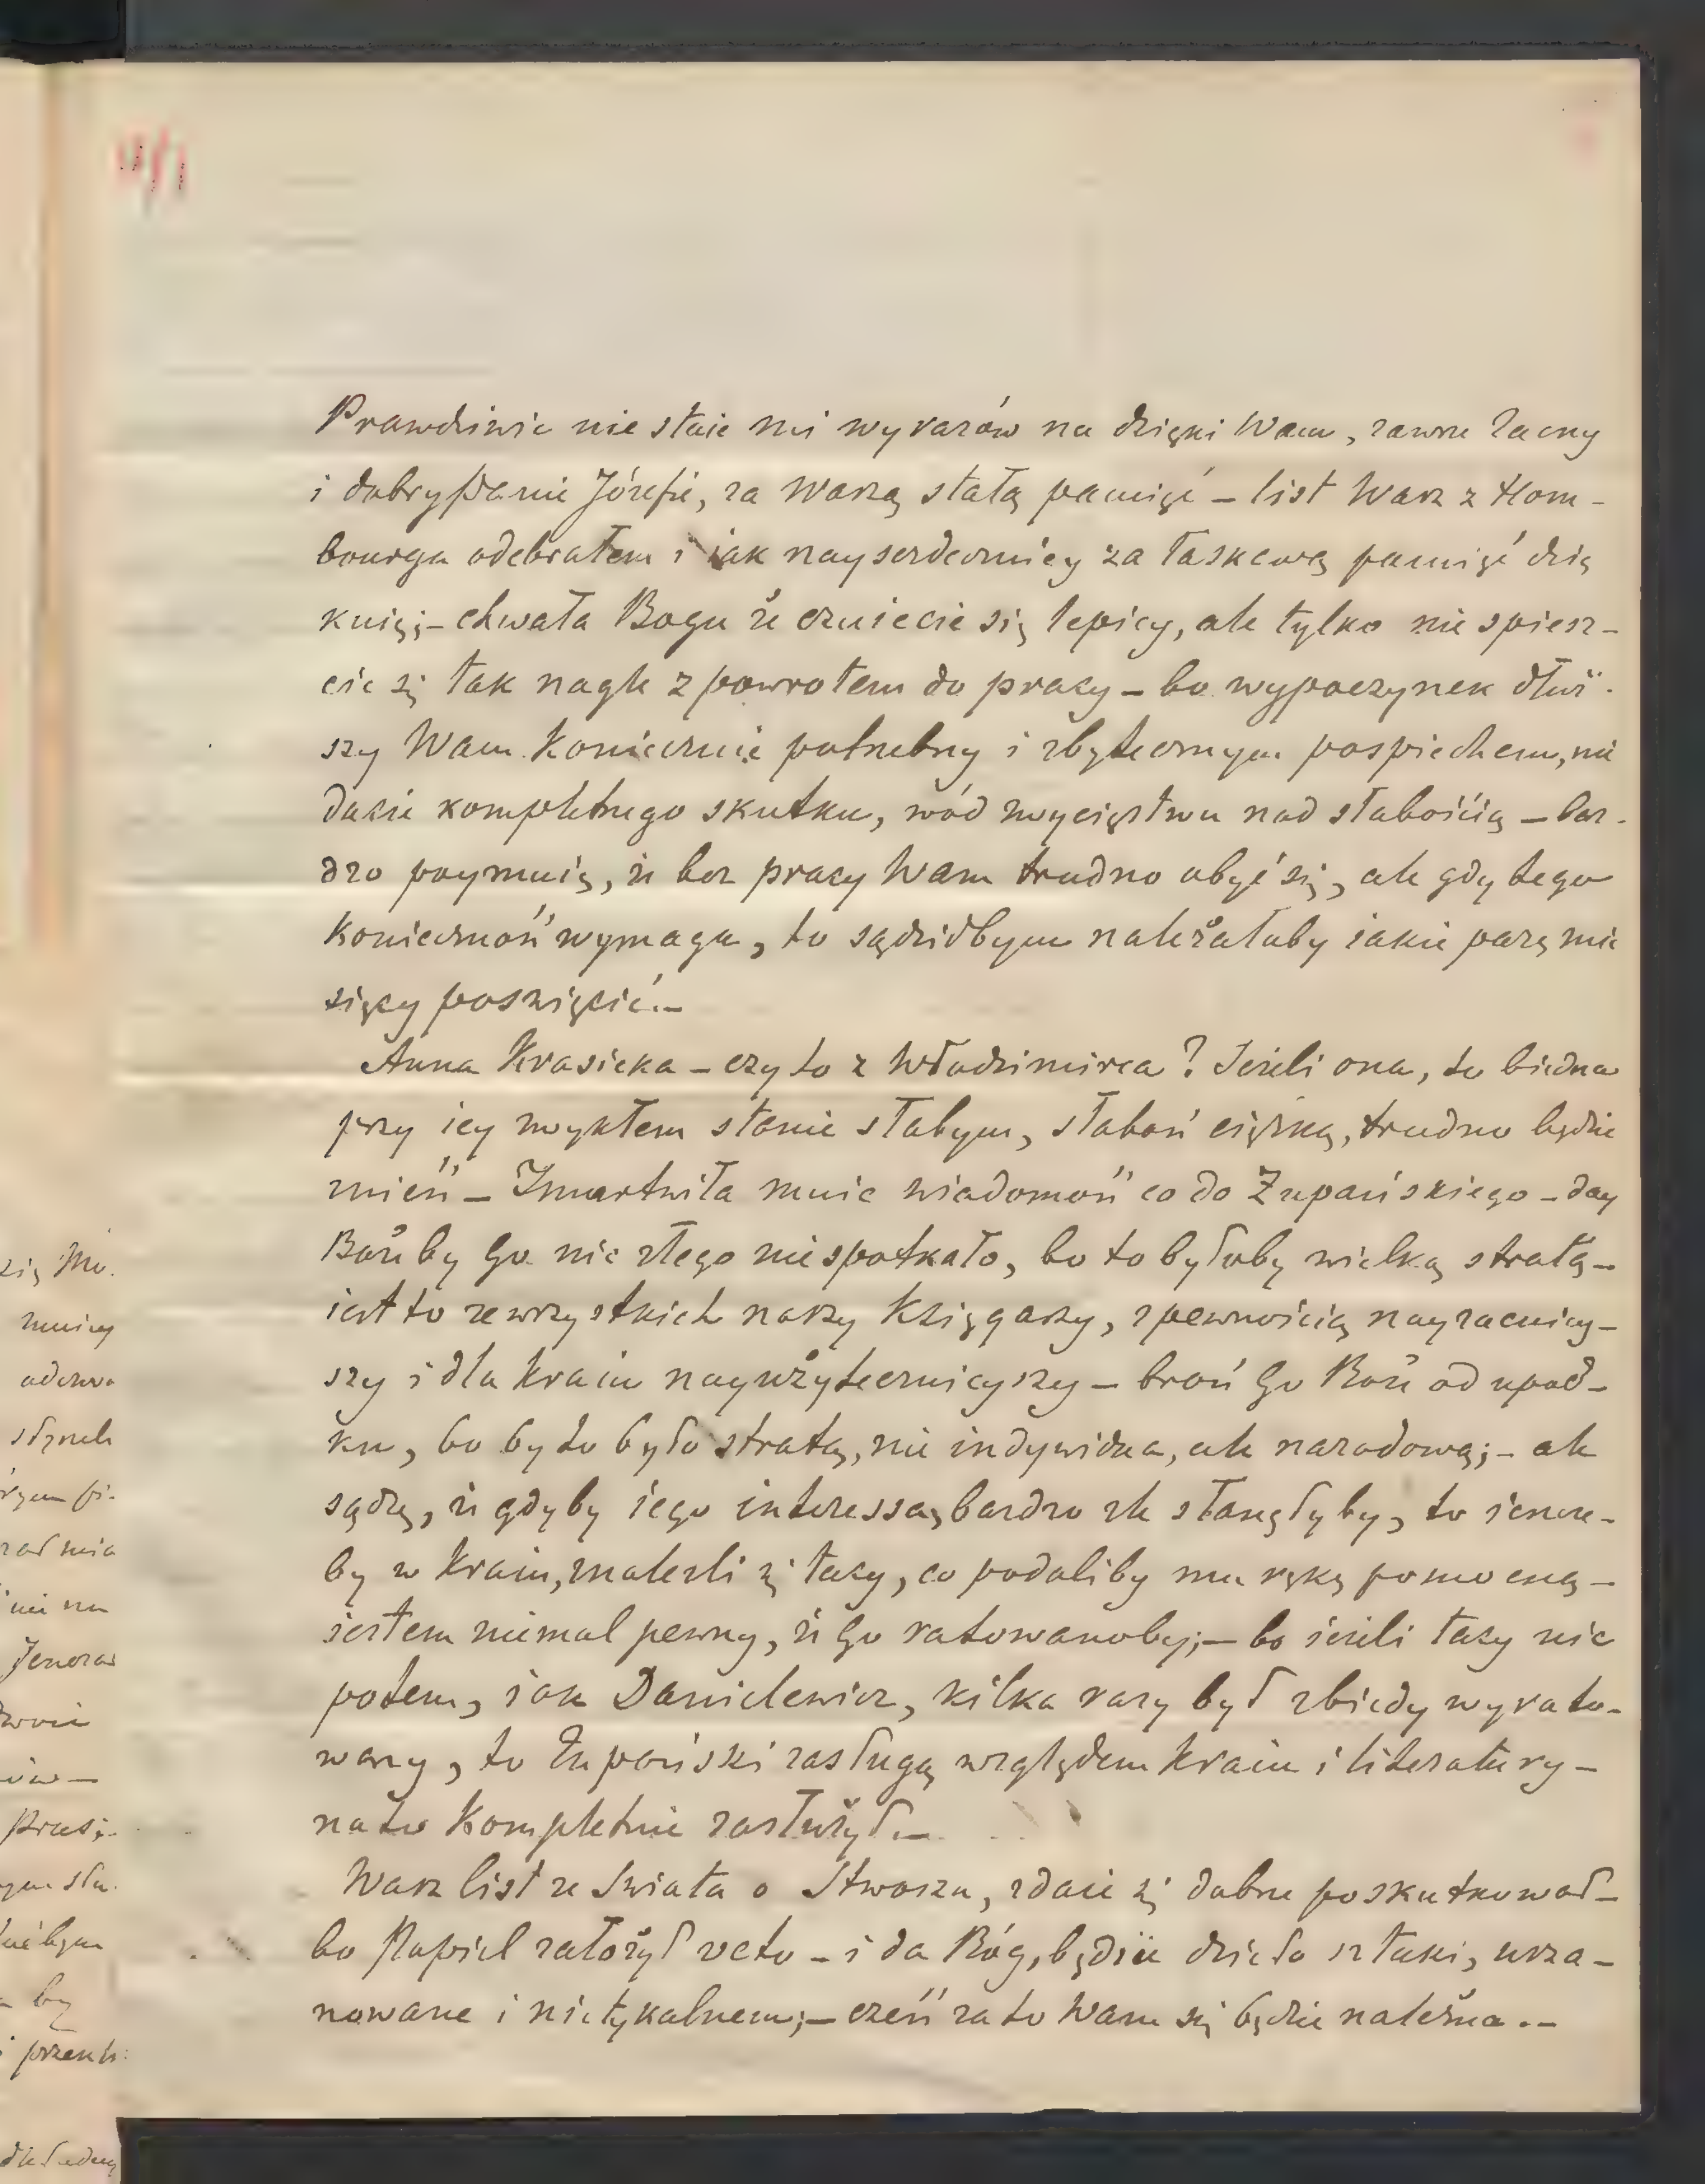 Prawdziwie nie staie mi wyrazów na dzięki Wam, zawsze Zacny
i dobry Panie Józefie, za Waszą stałą pamięć – list Wasz z Hom-
bourga odebrałem i iak nayserdeczniéy za łaskawą pamięć dzię
kuię; – chwała Bogu że czuiecie się lepiey, ale tylko nie spiesz-
cie się tak nagle z powrotem do pracy – bo wypoczynek dłuż-
szy Wam koniecznie potrzebny i zbytecznym pospiechem, nie
dacie kompletnego skutku, wód zwycięstwu nad słabością – bar-
dzo poymuię, że bez pracy Wam trudno obyć się, ale gdy tego
konieczność wymaga, to sądziłbym należałoby iakie parę mie
sięcy poswięcić. –
Anna Krasicka – czy to z Włodzimirca? Jeżeli ona, to biedna
przy iey zwykłem stanie słabym, słabość ciężką, trudno będzie
znieść – Zmartwiła mnie wiadomość co do Żupańskiego – day
Boże by Go nic złego niespotkało, bo to byłoby wielką stratą –
iest to ze wszystkich naszy Księgarzy, z pewnością nayzacniey-
szy i dla kraiu nayużyteczniejszy – broń Go Boże od upad-
ku, bo by to było stratą, nie indywidua, ale narodową; – ale
sądzę, że gdyby iego interessa, bardzo źle stanęłyby, to ieszcze-
by w kraiu, znaleźli się tacy, co podaliby mu rękę pomocną –
iestem niemal pewny, że Go ratowanoby; – bo ieżeli tacy nic
potem, iak Danielewicz, kilka razy był z biedy wyrato-
wany, to Żupański zasługą względem kraiu i literatury –
na to kompletnie zasłużył. –
Wasz list ze Swiata o Stwosza, zdaie się dobrze poskutkował –
bo Popiel założył veto – i da Bóg, będzie dzieło sztuki, usza-
nowane i nietykalnem; – cześć za to Wam się będzie należna. –